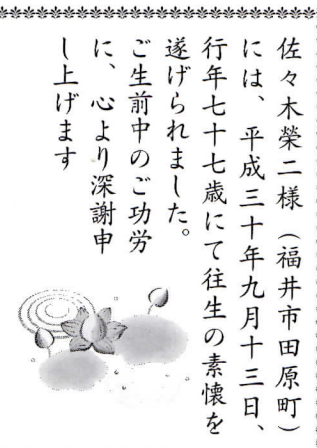 佐々木榮二様（福井市田原町）
には、平成三十年九月十三日、
行年七十七歳にて往生の素懐を
遂げられました。
ご生前中のご功労
に、心より深謝申
し上げます